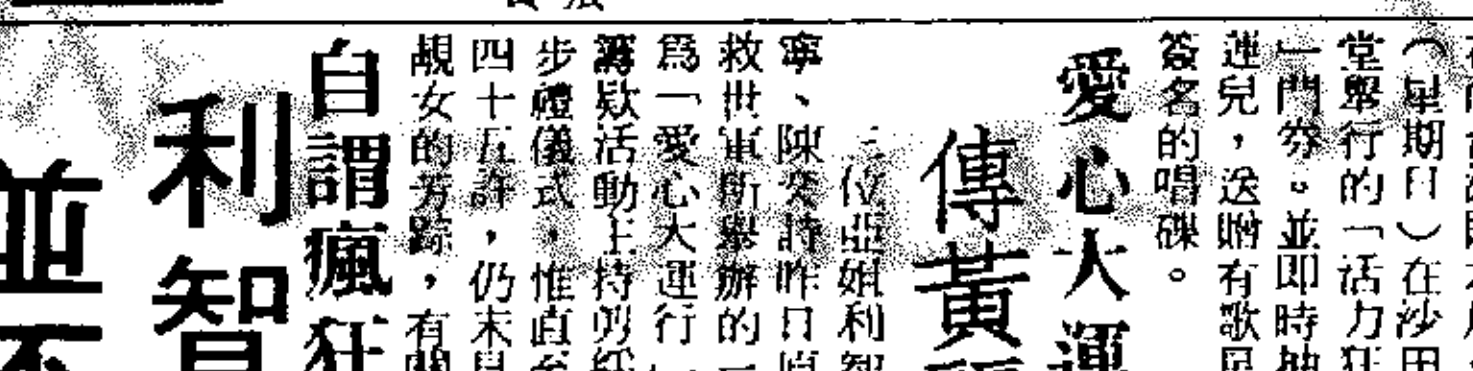 （星期日）在沙田
堂舉行的「活力狂
一門券。並即時抽
運兒，送贈有歌
簽名的唱碟。
愛心大運
傳黃
三位亞姐利智
寧、陳奕詩昨日原
救世軍所舉辦的一
爲「愛心大運行」
籌欵活動主持剪綵
步禮儀式，惟直至
四十五許，仍未見
靚女的芳踪，有關
自謂瘋狂
利智
並不